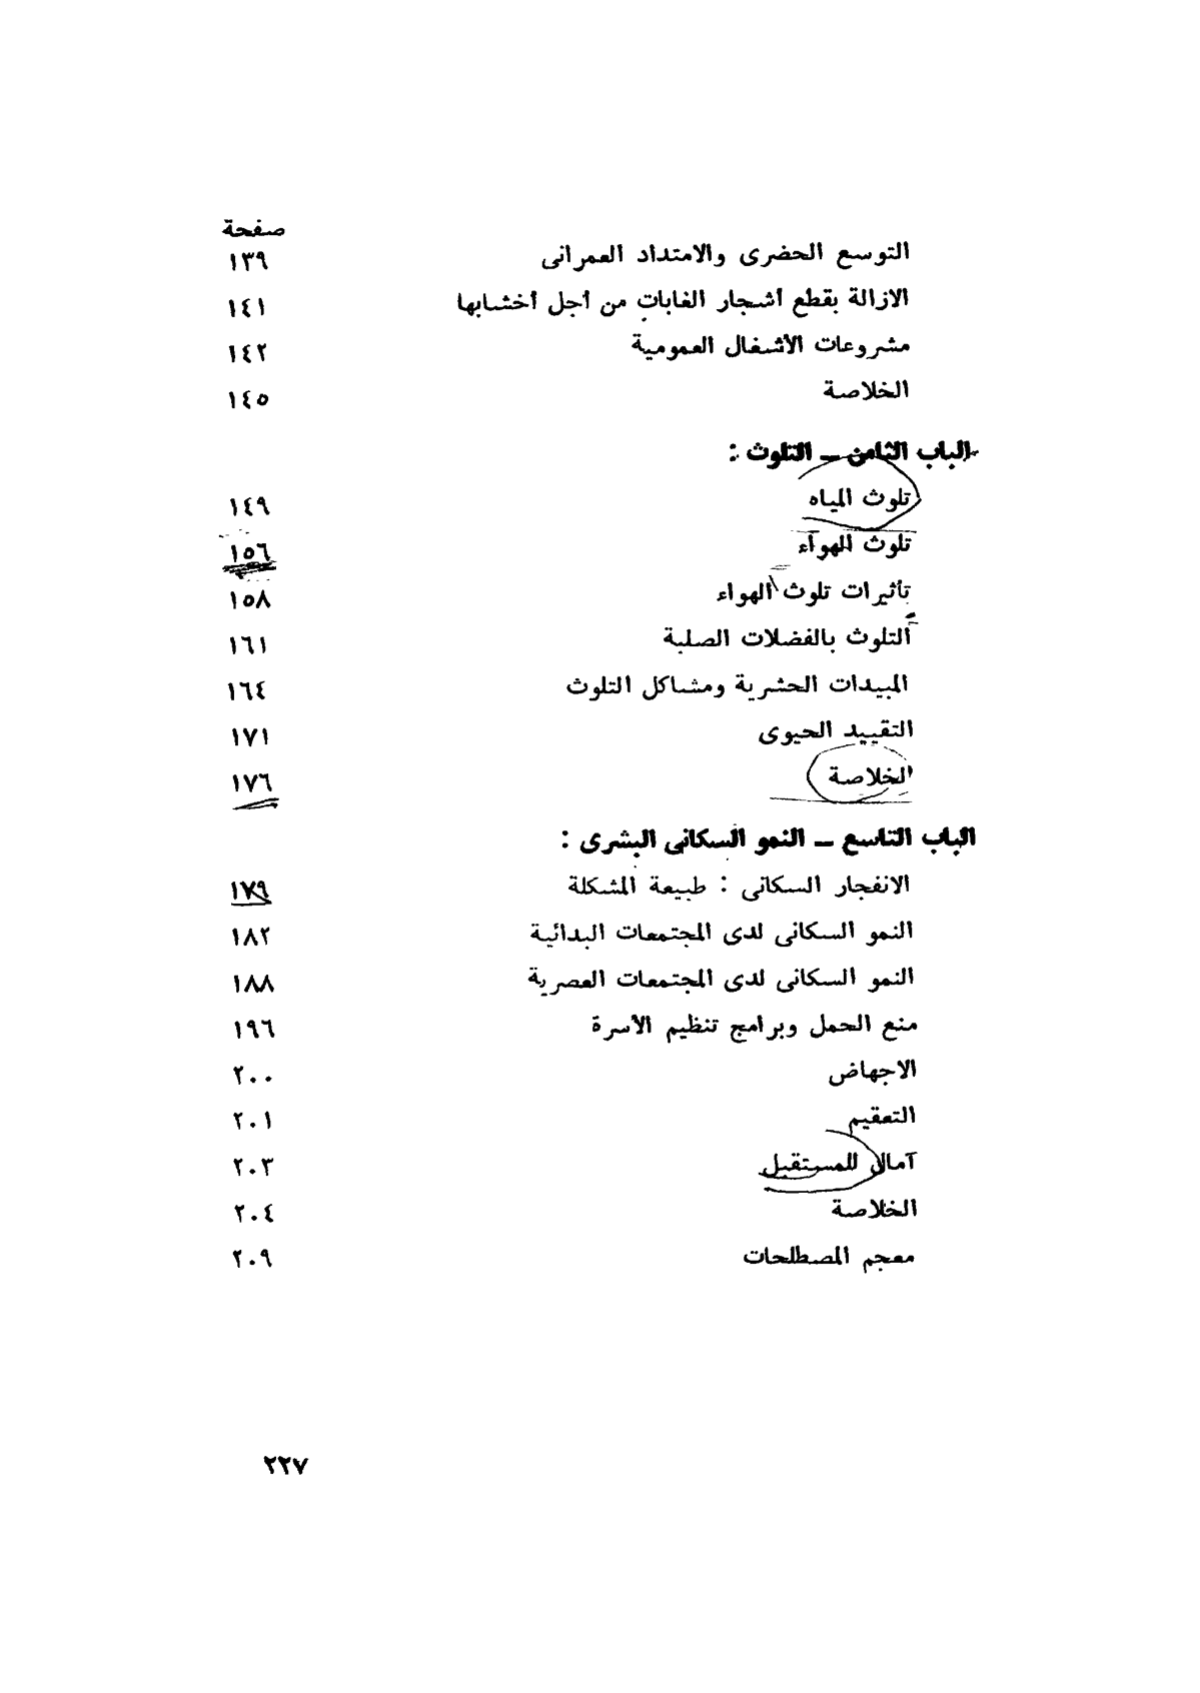 صفحة
التوسع الحضرى والامتداد العمرانى ١٣٩
الازالة بقطع أشجار الغابات من أجل أخشابها ١٤١
مشروعات الأشغال العمومية ١٤٢
الخلاصة ١٤٥
الباب الثامن ــ التلوث :
تلوث المياه ١٤٩
تلوث الهواء ١٥٦
تأثيرات تلوث الهواء ١٥٨
التلوث بالفضلات الصلبة ١٦١
المبيدات الحشرية ومشاكل التلوث ١٦٤
التقييد الحيوى ١٧١
الخلاصة ١٧٦
الباب التاسع ــ النمو السكانى البشرى :
الانفجار السكانى : طبيعة المشكلة ١٧٩
النمو السكانى لدى المجتمعات البدائية ١٨٢
النمو السكانى لدى المجتمعات العصرية ١٨٨
منع الحمل وبرامج تنظيم الأسرة ١٩٦
الاجهاض ٢٠٠
التعقيم ٢٠١
آمال للمستقبل ٢٠٣
الخلاصة ٢٠٤
معجم المصطلحات ٢٠٩
٢٢٧